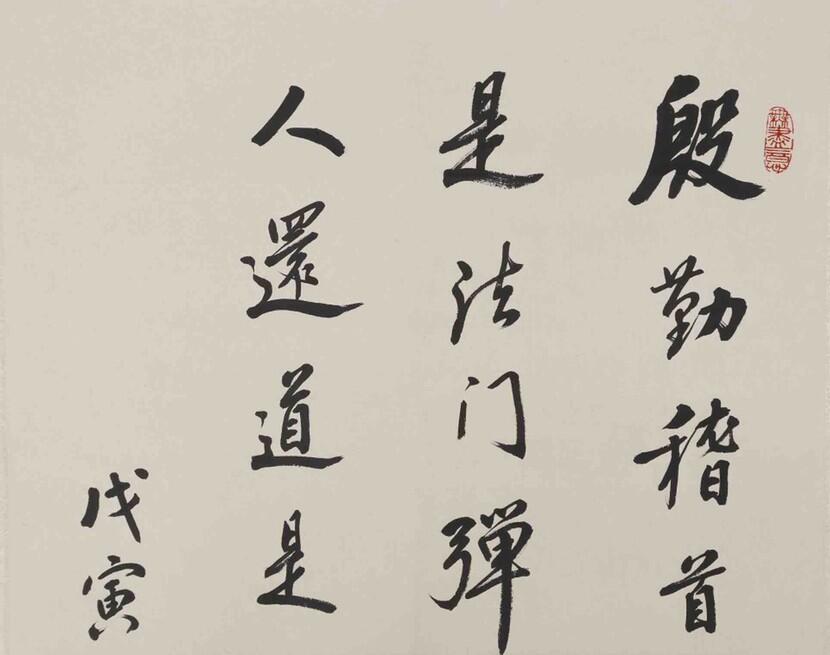 殷勤稽首
是法门彈
人還道是
戊寅